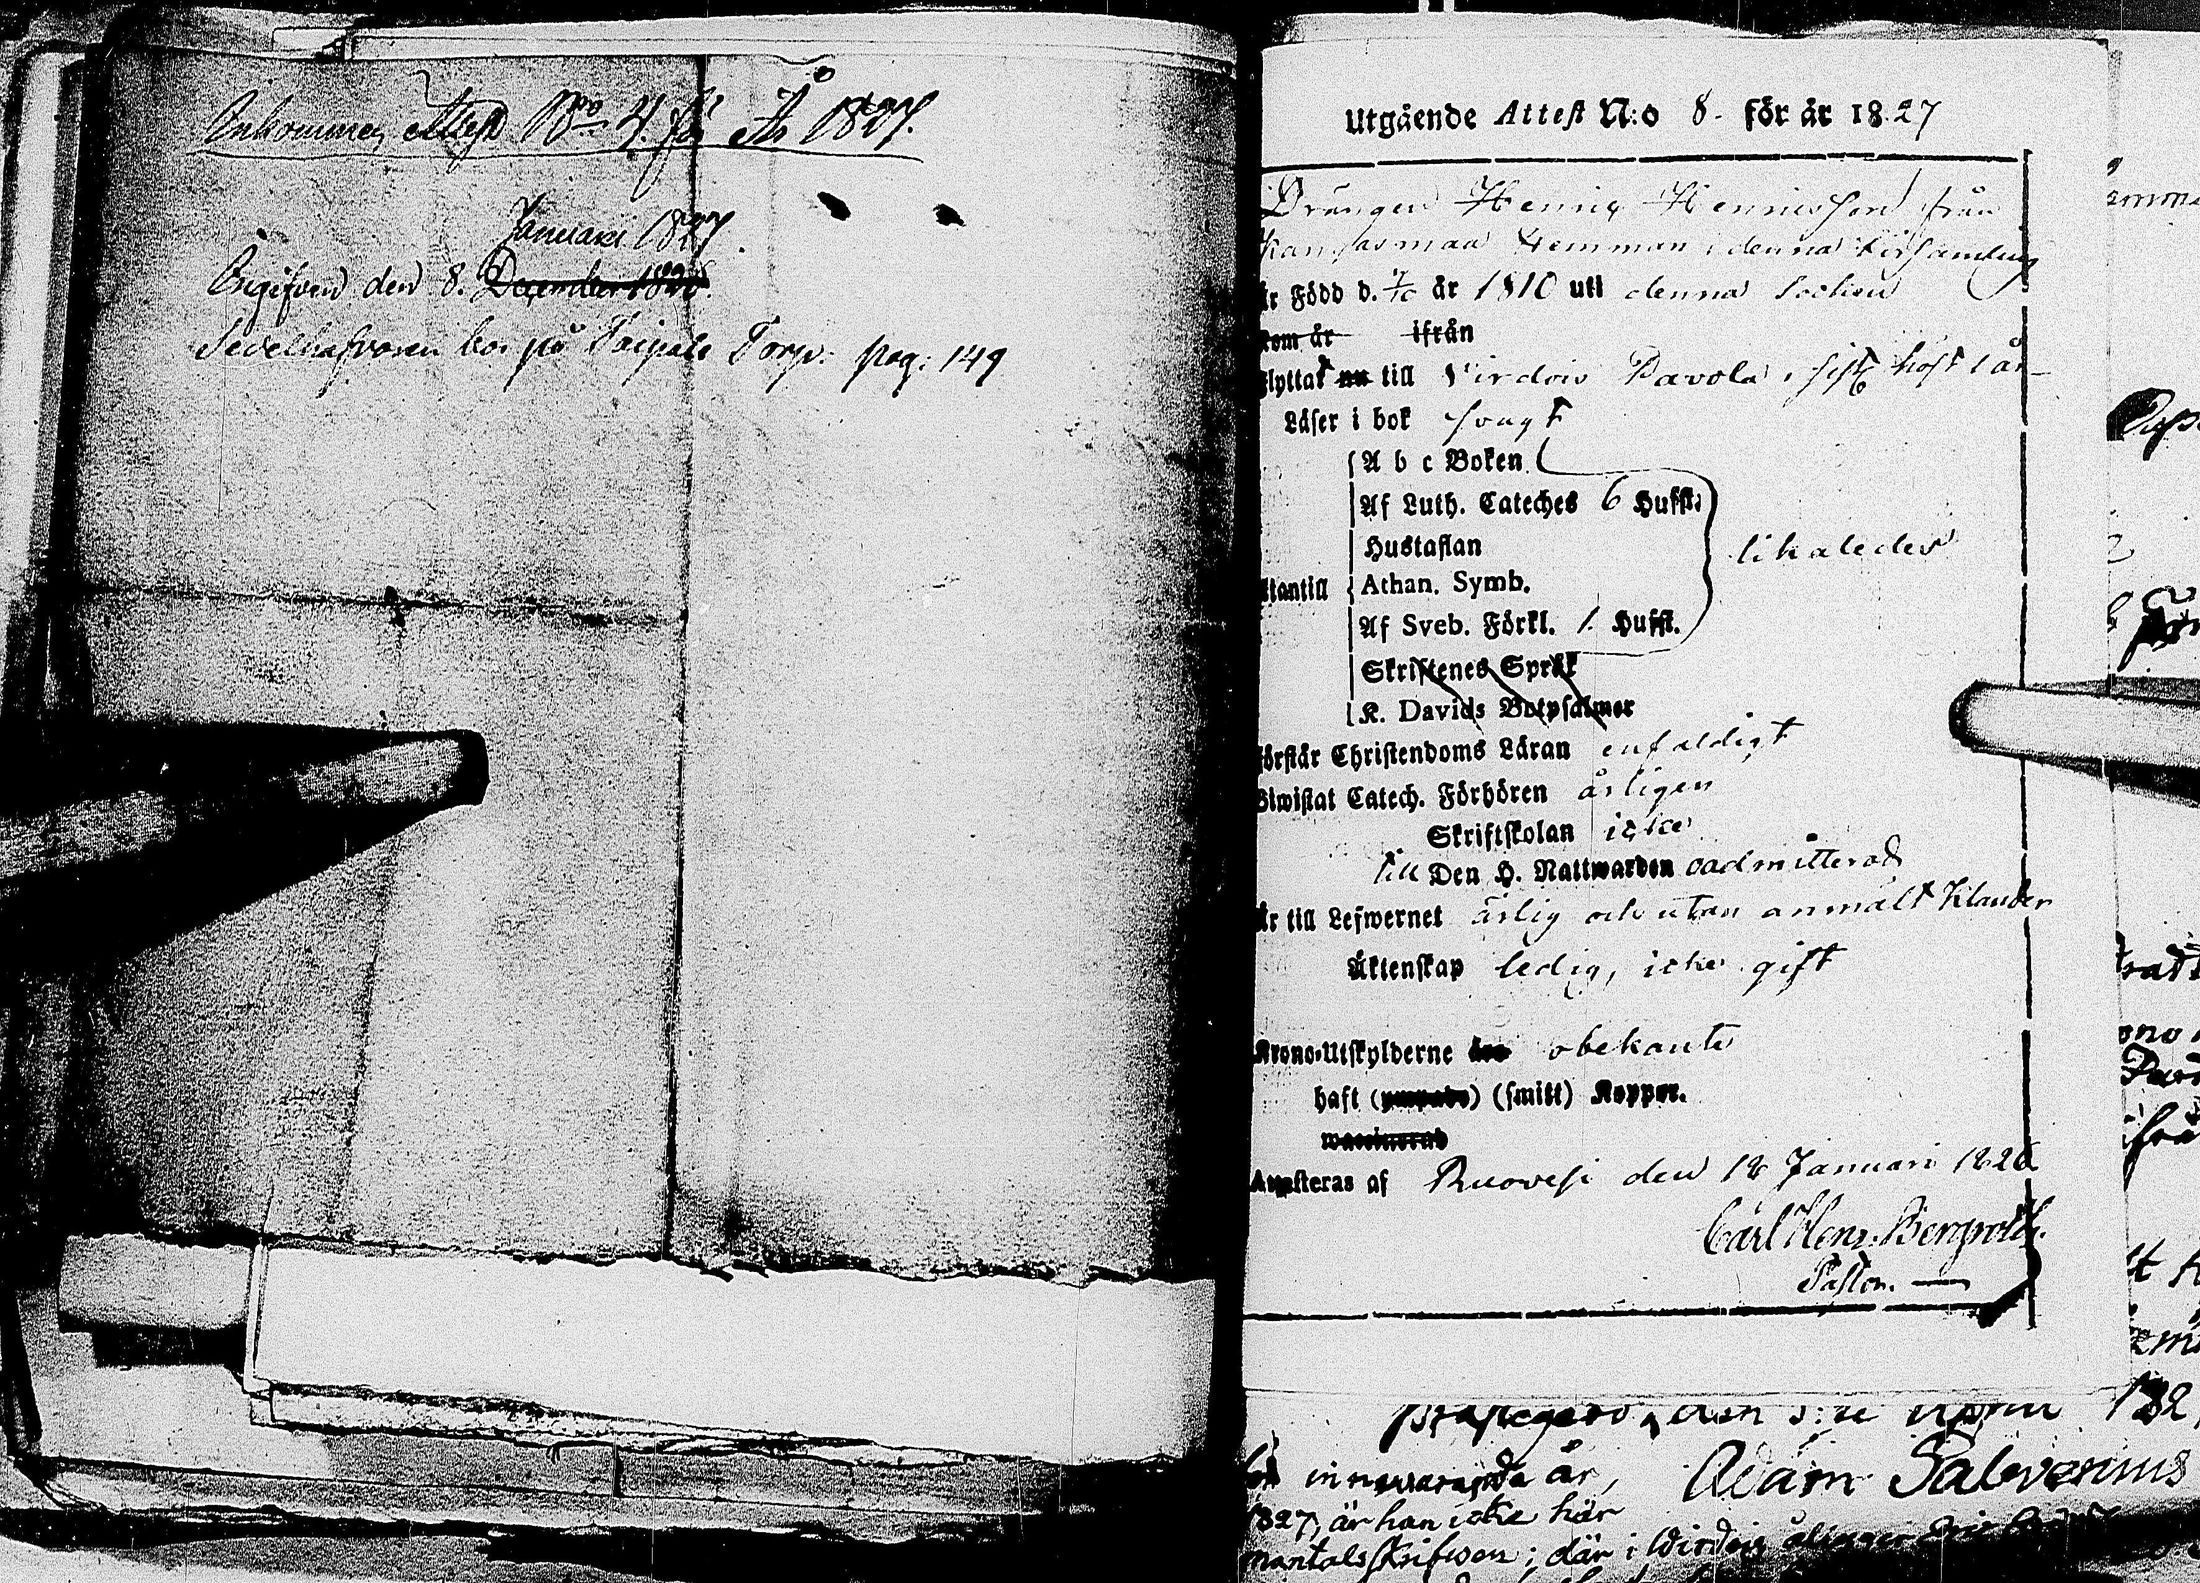 Inkommen Attest No 4 för År 1827.
Januari 1827
Ingifven den 8. December 1826.
Sedelhafvaren bor på Taipale Torp. pag: 149
Utgående Attest N:o 8. för år 1827
Drängen Henric Henricsson från
Kangasmaa Hemman i denna Församling
är Född d. år 1810 uti denna Socken
kom år ifrån
flyttat nu till Virdois Pavola, sistl höst
Läser i bok svagt
A b c Boken
Af Luth. Cateches 6 Hufst.
Hustaflan
likaledes
Utantill Athan. Symb.
Af Sveb. Förkl. 1. Hufst.
Skriftenes Språk
K. Davids Botpsalmer
Förstår Christendoms Läran enfaldigt
Biwistat Catech. Förhören årligen
Skriftskolan icke
till Den H. Nattwarden oadmitterad
Är till Lefwernet ärlig och utan anmält klander
Äktenskap ledig, icke gift
Krono-Utskylderne äro obekante
haft (ympade) (smitt) Koppor.
waccinerad
Attesteras af Ruovesi den 18 Januari 1826
Carl Henr. Bergroth.
Pastor.
den April 182
innevarande år, Adam Salovenius
1827, är han icke här
mantalsskrifwen; där i Wirdois